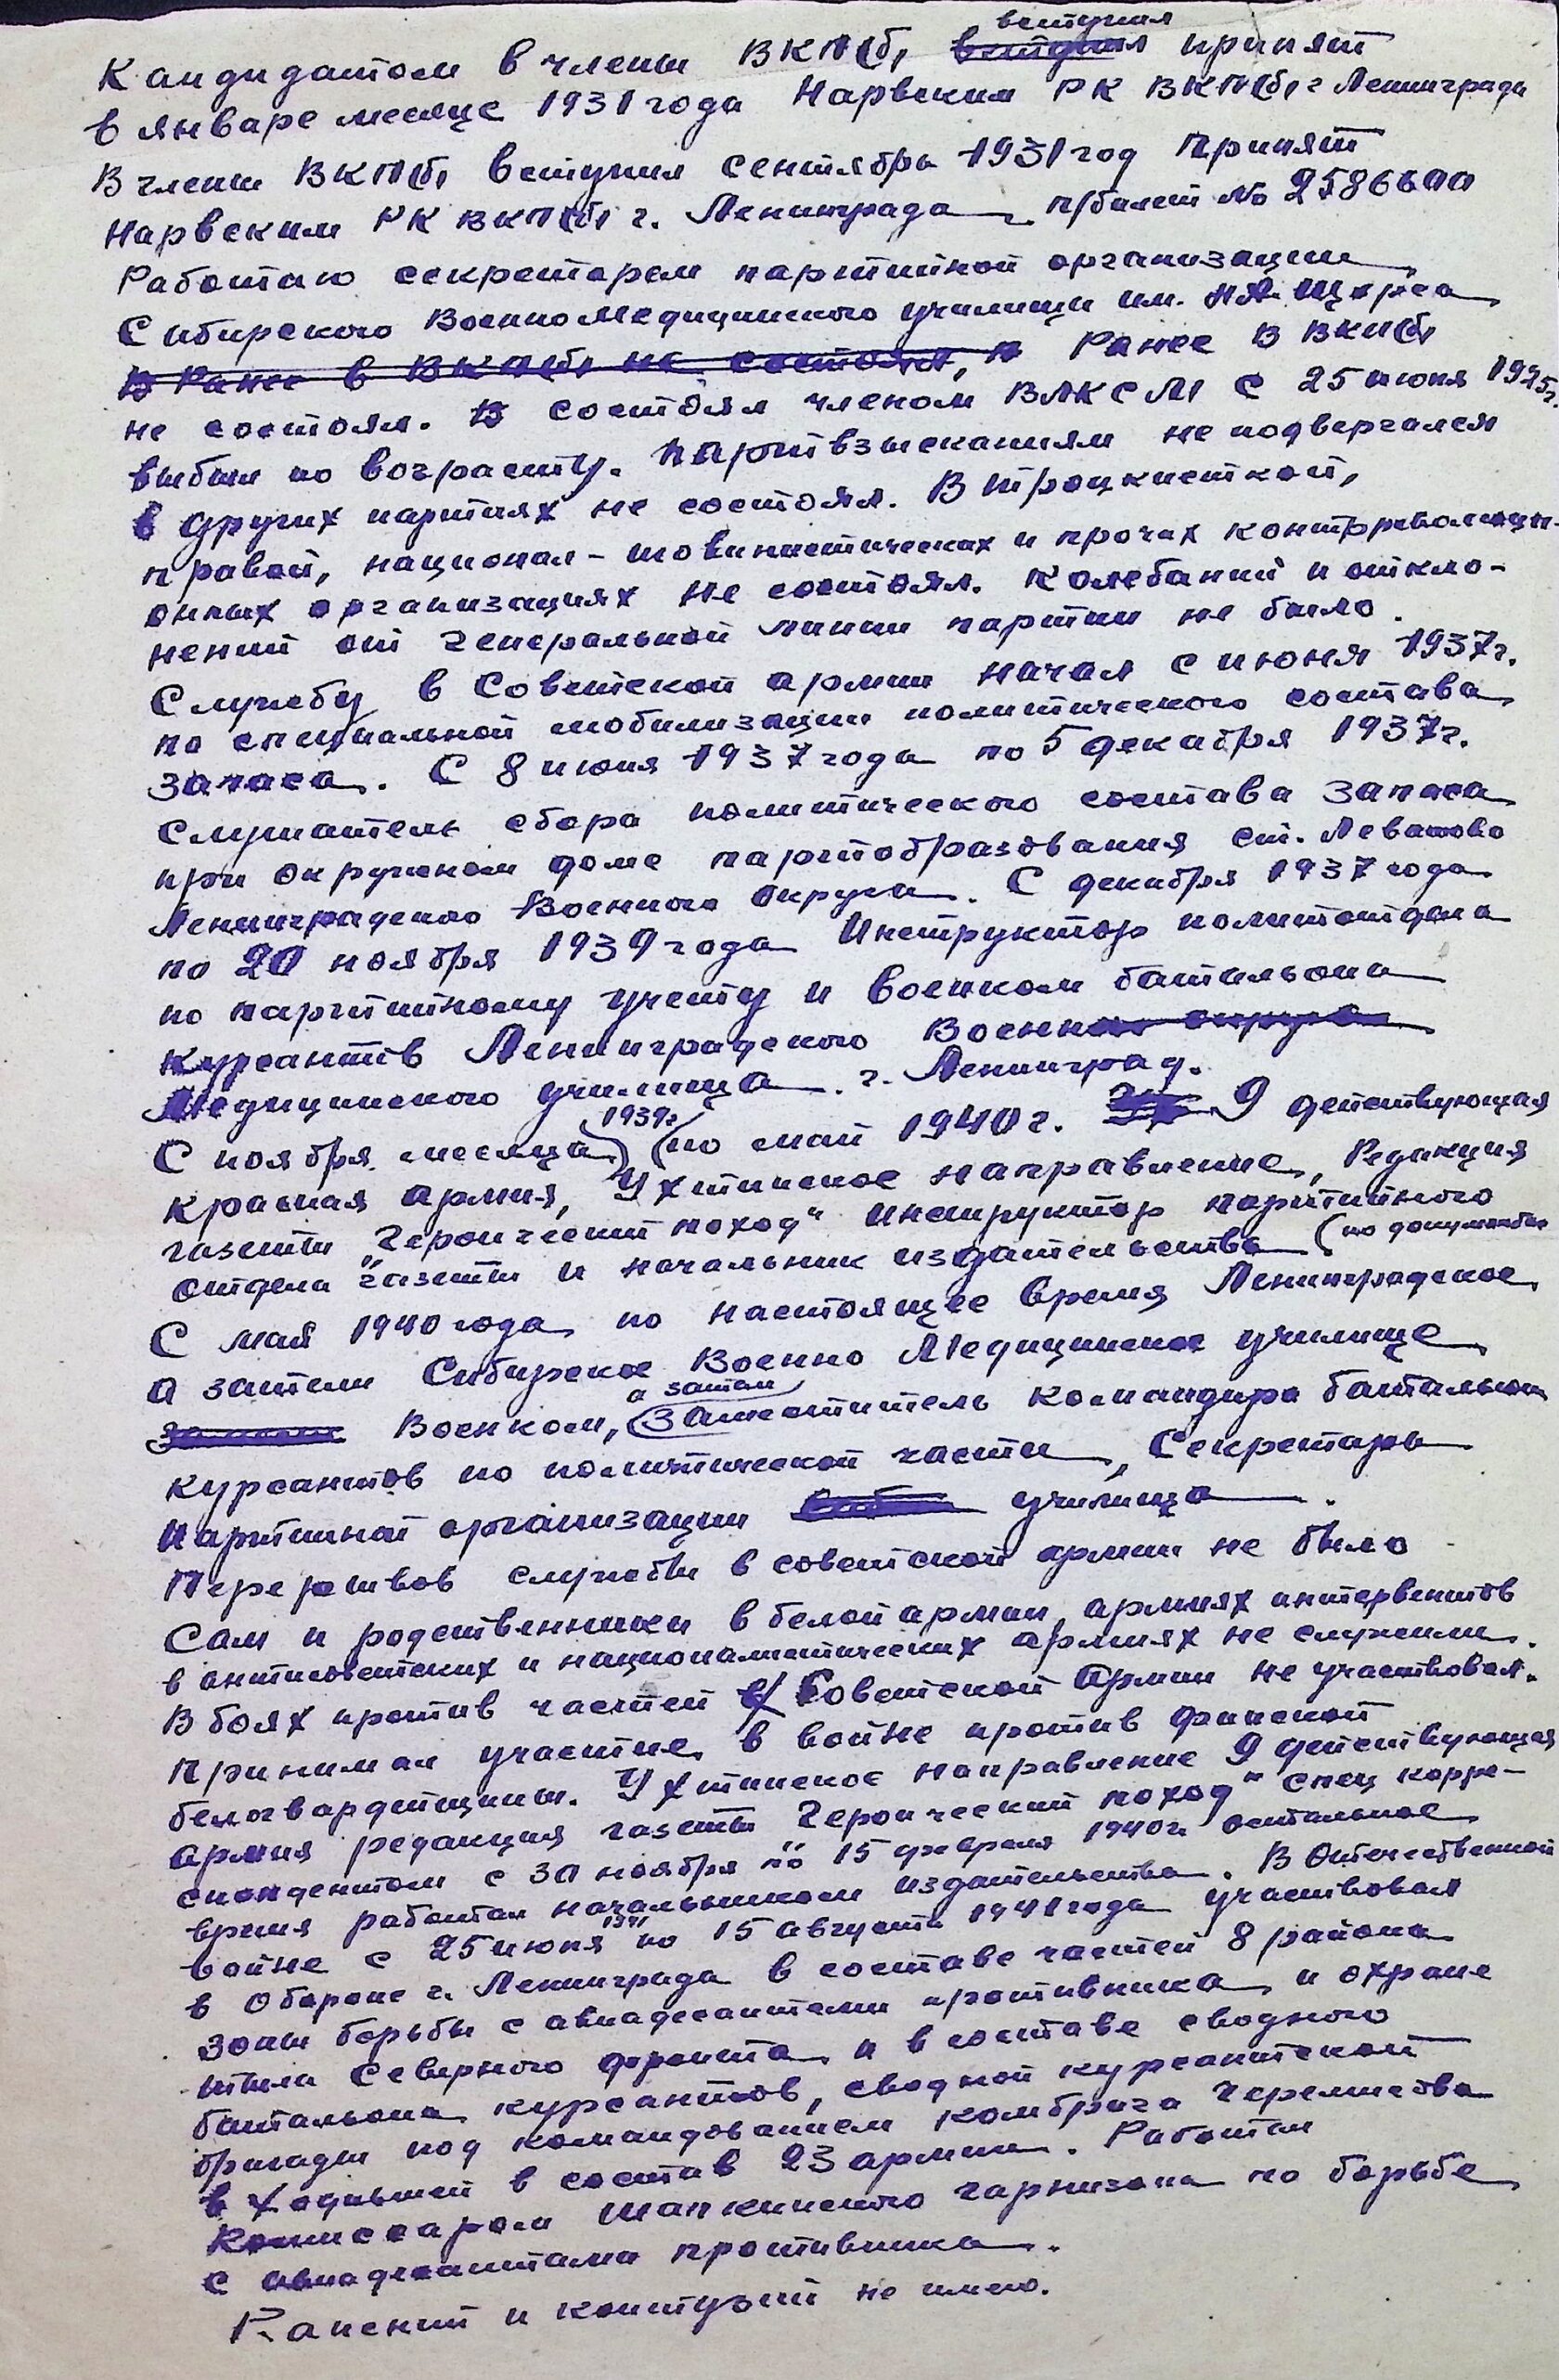 вступил
Кандидатом в члены ВКП(б) вступил принят
в январе месяце 1931 года Нарвским РК ВКП(б) г Ленинграда
В члены ВКП(б) вступил сентябрь 1931 год Принят
Нарвским РК ВКП(б) г. Ленинграда п/билет № 2586600
Работаю секретарем партийной организации
Сибирского Военно Медицинского училища им. НА. Щорса
В Ранее в ВКП(б) не состоял, в Ранее в ВКП(б)
не состоял. В состоял членом ВЛКСМ с 25 июня 1925г.
выбыл по возрасту. Партвзысканиям не подвергался
в других партиях не состоял. В троцкисткой,
правой, национал-шовинистических и прочих контрреволюци-
онных организациях не состоял. Колебаний и откло-
нений от генеральной линии партии не было.
Службу в Советской армии начал с июня 1937г.
по специальной мобилизации политического состава
запаса. С 8 июня 1937 года по 5 декабря 1937г.
слушатель сбора политического состава запаса
при окружном доме партобразования ст. Левашово
Ленинградского Военного Округа. С декабря 1937 года
по 20 ноября 1939 года Инструктор политотдела
по партийному учету и военком батальона
курсантов Ленинградского Военного округа
Медицинского училища. г. Ленинград.
С ноября месяца 1939г (по май 1940 г. 9 действующая
красная армия, Ухтинское направление, Редакция
газеты „Героический поход" инструктор партийного
отдела газеты и начальник издательства (по документам
С мая 1940 года по настоящее время Ленинградское,
а затем Сибирское Военно Медицинское училище
Военком, а затем Заместитель командира батальона
курсантов по политической части, Секретарь
партийной организации училища.
Перерывов службы в советской армии не было
Сам и родственники в белой армии, армиях интервентов
в антисоветских и националистических армиях не служили.
В боях против частей Советской Армии не участвовал.
Принимал участие в войне против финской
белогвардейщины. Ухтинское направление 9 действующая
армия редакция газеты „Героический поход" спец корре-
спондентом с 30 ноября по 15 февраля 1940г. остальное
время работал начальником издательства. В Отечественной
войне с 25 июня 1941 по 15 августа 1941 года участвовал
в обороне г. Ленинграда в составе частей 8 района
зоны борьбы с авиадесантами противника и охране
тыла Северного фронта и в составе сводного
батальона курсантов, сводной курсантской
бригады под командованием комбрига Черемисова
входившей в состав 23 армии. Работал
Комиссаром Шапкинского гарнизона по борьбе
с авиадесантами противника.
Ранений и контузий не имею.